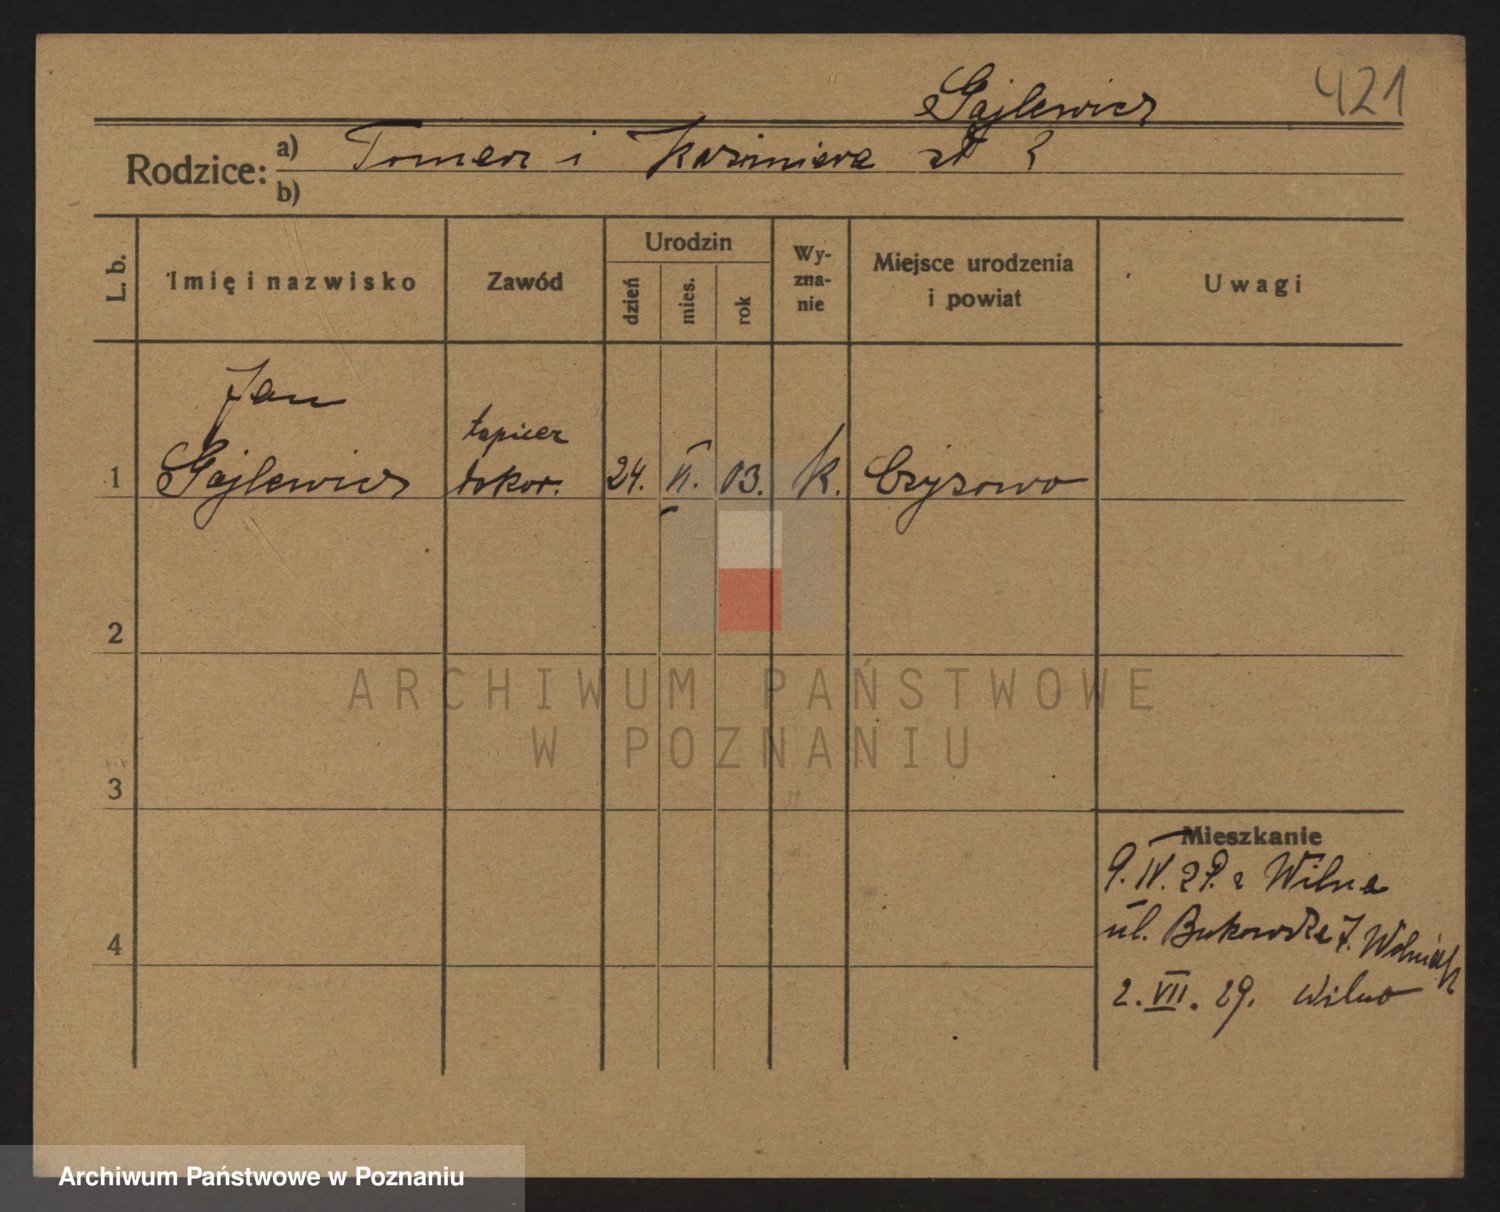 421
Gajlewicz
Rodzice: a) Tomasz i Kazimiera zd ?
b)
L. b.
Imię i nazwisko
Zawód
Urodzin
dzień
mies.
rok
Wy-
zna-
nie
Miejsce urodzenia
i powiat
Uwagi
Jan
tapicer
1 Gajlewicz dekor. 24. VI. 03. k. Czyżowo
2
ARCHIWUM PAŃSTWOWE
W POZNANIU
3
Mieszkanie
9. IV. 29. z Wilna
ul. Bukowska 7. Wolniak
4
2. VII. 29. Wilno
Archiwum Państwowe w Poznaniu